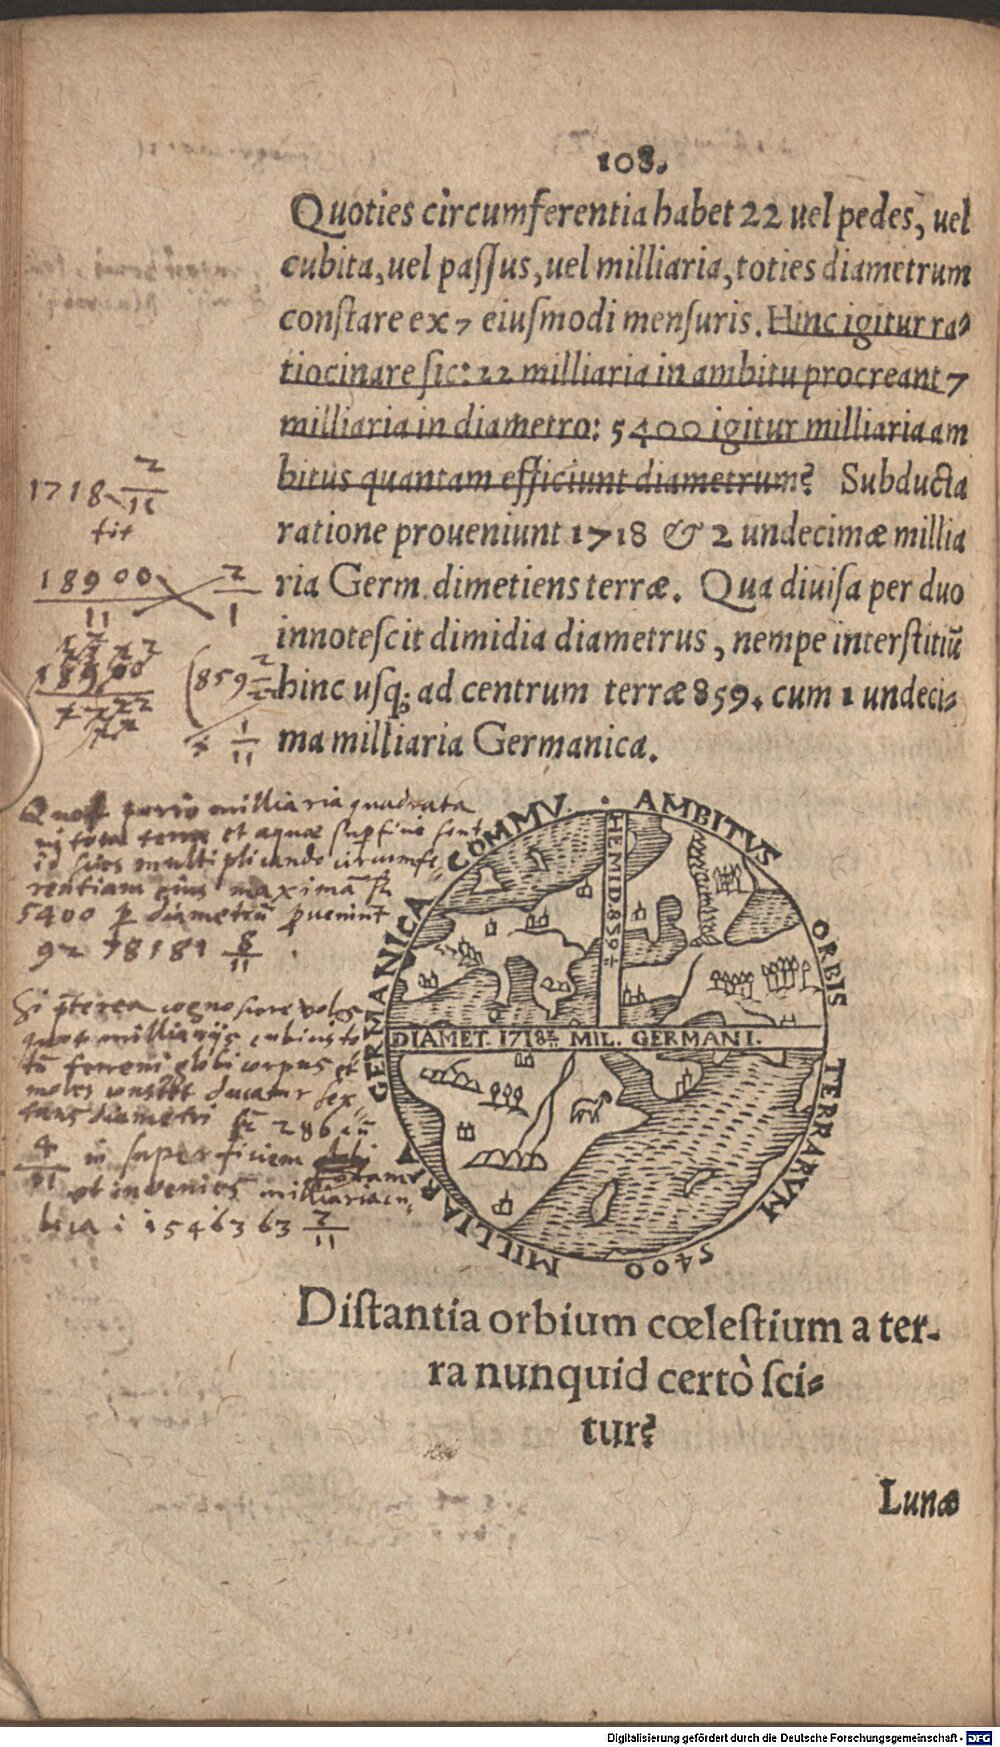 108.
Quoties circumferentia habet 22 uel pedes, uel
cubita, uel paſſus, uel milliaria, toties diametrum
conſtare ex 7 eiuſmodi menſuris. Hinc igitur ra⸗
tiocinare ſic: 22 milliaria in ambitu procreant 7
milliaria in diametro: 5400 igitur milliaria am
bitus quantam efficiunt diametrum? Subducta
ratione proueniunt 1718 & 2 undecimæ millia
ria Germ. dimetiens terræ. Qua diuiſa per duo
innoteſcit dimidia diametrus, nempe interſtitiū
hinc uſq; ad centrum terræ 859. cum 1 undeci⸗
ma milliaria Germanica.
1718 2/11
fit
18900 2
11 1
18900
(859 2
1/11
Quot porro milliaria quadrata
in tota terræ et aquæ superficie sint
id scies multiplicando circumfe⸗
rentiam eius maximā
5400 diametrū
9278181 8/11
Si præterea cognoscere voles
quot milliariis cubicis to
terreni globi corpus et
moles constet ducatur sex⸗
tans diametri 286
4/11 in superficiem
et invenies milliaria cu⸗
bica 2/11
AMBITVS ORBIS TERRARVM 5400 MILLIARIA GERMANICA COMMV.
HEMID. 859 1/11
DIAMET. 1718 2/11 MIL. GERMANI.
Diſtantia orbium cœleſtium a ter-
ra nunquid certò ſci⸗
tur?
Lunæ
Digitalisierung gefördert durch die Deutsche Forschungsgemeinschaft - DFG